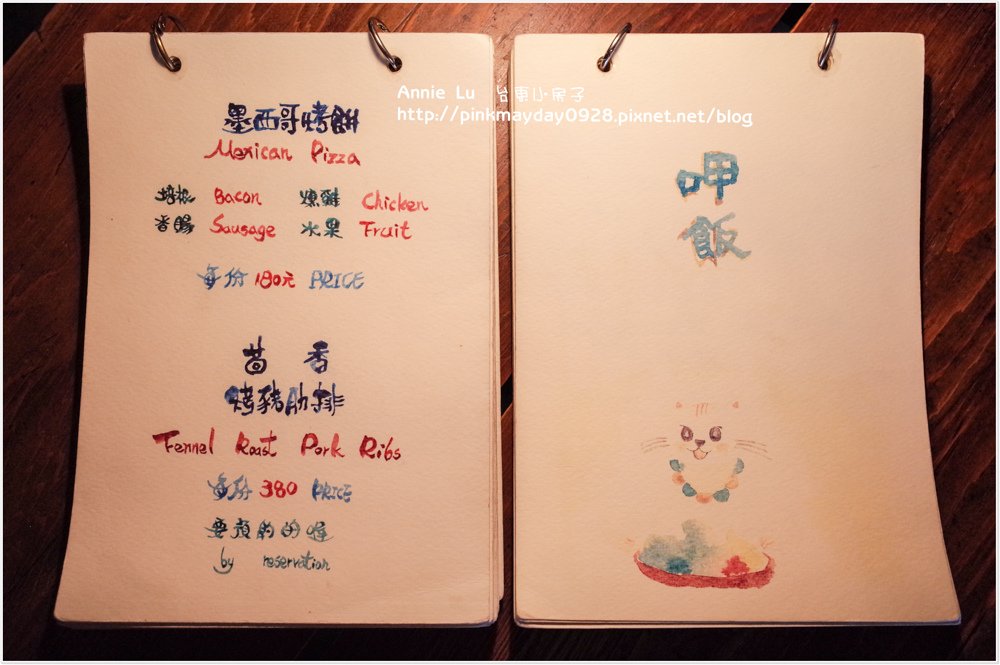 Annie Lu 台東小房子
http://pinkmayday0928.pixnet.net/blog
墨西哥烤餅
Mexican Pizza
培根 Bacon 燻雞 Chicken
香腸 Sausage 水果 Fruit
每份 180元 PRICE
茴香
烤豬肋排
Fennel Roast Pork Ribs
每份 380 PRICE
要預約的喔
by reservation
呷
飯